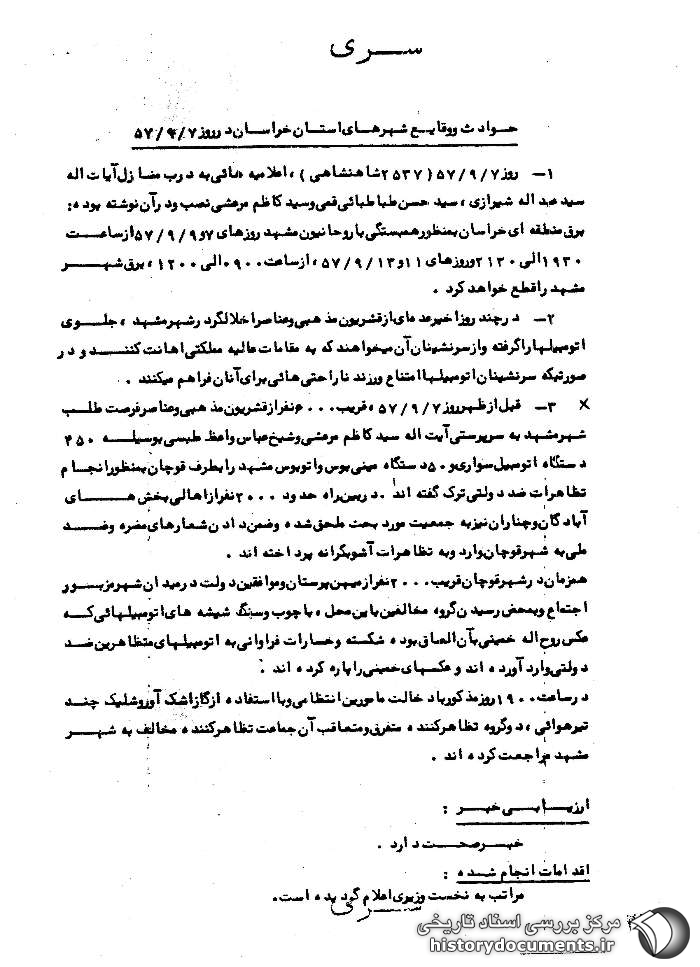 سری
حوادث ووقایع شهرهای استان خراسان در روز ۵۷/۹/۷
۱- روز ۵۷/۹/۷ (۲۵۳۷ شاهنشاهی) ، اعلامیه هائی به درب منازل آیات اله
سید عبد اله شیرازی ، سید حسن طباطبائی قمی وسید کاظم مرعشی نصب ودرآن نوشته بود :
برق منطقه ای خراسان بمنظور همبستگی با روحانیون مشهد روزهای ۷و۵۷/۹/۹ از ساعت
۱۹۳۰ الی ۲۱۳۰ وروزهای ۱۱و۵۷/۹/۱۳ ، از ساعت ۰۹۰۰ الی ۱۲۰۰ ، برق شهر
مشهد راقطع خواهد کرد .
۲- در چند روز اخیر عده ای از قشریون مذهبی وعناصر اخلالگر در شهر مشهد ، جلوی
اتومبیلها راگرفته واز سرنشینان آن میخواهند که به مقامات عالیه مملکتی اهانت کنند و در
صورتیکه سرنشینان اتومبیلها امتناع ورزند ناراحتی هائی برای آنان فراهم میکنند .
× ۳- قبل از ظهر روز ۵۷/۹/۷ ، قریب ۶۰۰۰ نفر از قشریون مذهبی وعناصر فرصت طلب
شهر مشهد به سرپرستی آیت اله سید کاظم مرعشی وشیخ عباس واعظ طبسی بوسیله ۴۵۰
دستگاه اتومبیل سواری و۵۰ دستگاه مینی بوس واتوبوس مشهد رابطرف قوچان بمنظور انجام
تظاهرات ضد دولتی ترک گفته اند . در بین راه حدود ۲۰۰۰ نفر از اهالی بخش های
آبادگان وچناران نیز به جمعیت مورد بحث ملحق شده وضمن دادن شعارهای مضره وضد
ملی به شهر قوچان وارد وبه تظاهرات آشوبگرانه پرداخته اند .
همزمان در شهر قوچان قریب ۲۰۰۰ نفر از میهن پرستان وموافقین دولت در میدان شهر مزبور
اجتماع وبمحض رسیدن گروه مخالفین باین محل ، با چوب وسنگ شیشه های اتومبیلهائی که
عکس روح اله خمینی بآن الصاق بوده شکسته وخسارات فراوانی به اتومبیلهای متظاهرین ضد
دولتی وارد آورده اند و عکسهای خمینی راپاره کرده اند .
در ساعت ۱۹۰۰ روز مذکور با دخالت مامورین انتظامی وبا استفاده از گاز اشک آور وشلیک چند
تیر هوائی ، دوگروه تظاهرکننده متفرق ومتعاقب آن جماعت تظاهرکننده مخالف به شهر
مشهد مراجعت کرده اند .
ارزیابی خبر :
خبر صحت دارد .
اقدامات انجام شده :
مراتب به نخست وزیری اعلام گردیده است.
سری
مرکز بررسی اسناد تاریخی
historydocuments.ir